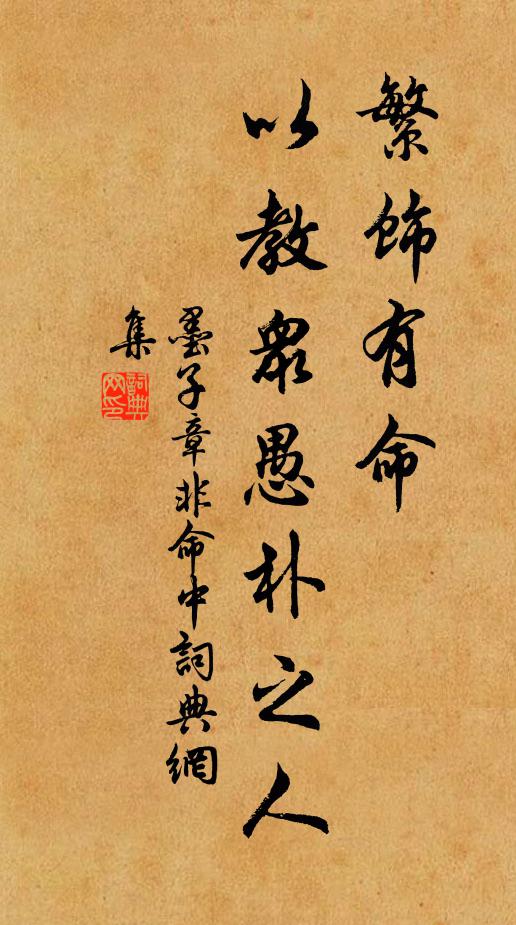 繁飾有命
以教衆愚朴之人
墨子章非命中詞典網
集
詞典
网印